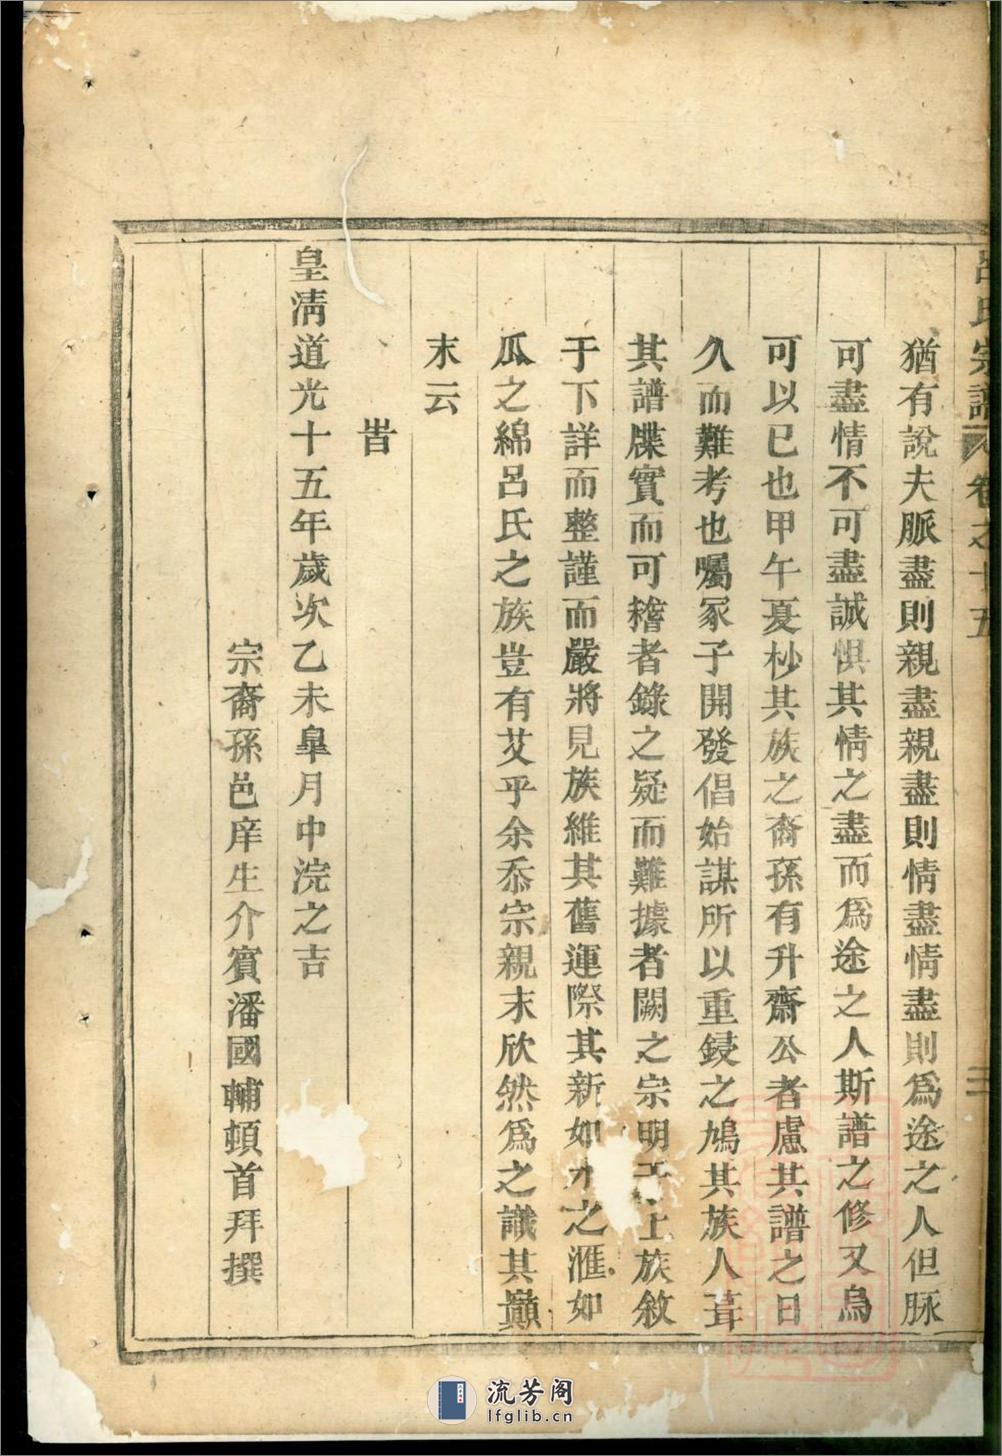 呂氏宗譜 卷之十五 三
猶有說夫脈盡則親盡親盡則情盡情盡則爲途之人但脉
可盡情不可盡誠惧其情之盡而爲途之人斯譜之修又烏
可以已也甲午夏杪其族之裔孫有升齋公者慮其譜之日
久而難考也囑冢子開發倡始謀所以重鋟之鳩其族人葺
其譜牒實而可稽者錄之疑而難據者闕之宗明于上族敘
于下詳而整謹而嚴將見族維其舊運際其新如水之滙如
瓜之綿呂氏之族豈有艾乎余忝宗親末欣然爲之識其巔
末云
旹
皇清道光十五年歲次乙未臯月中浣之吉
宗裔孫邑庠生介賓潘國輔頓首拜撰
流芳阁
lfglib.cn